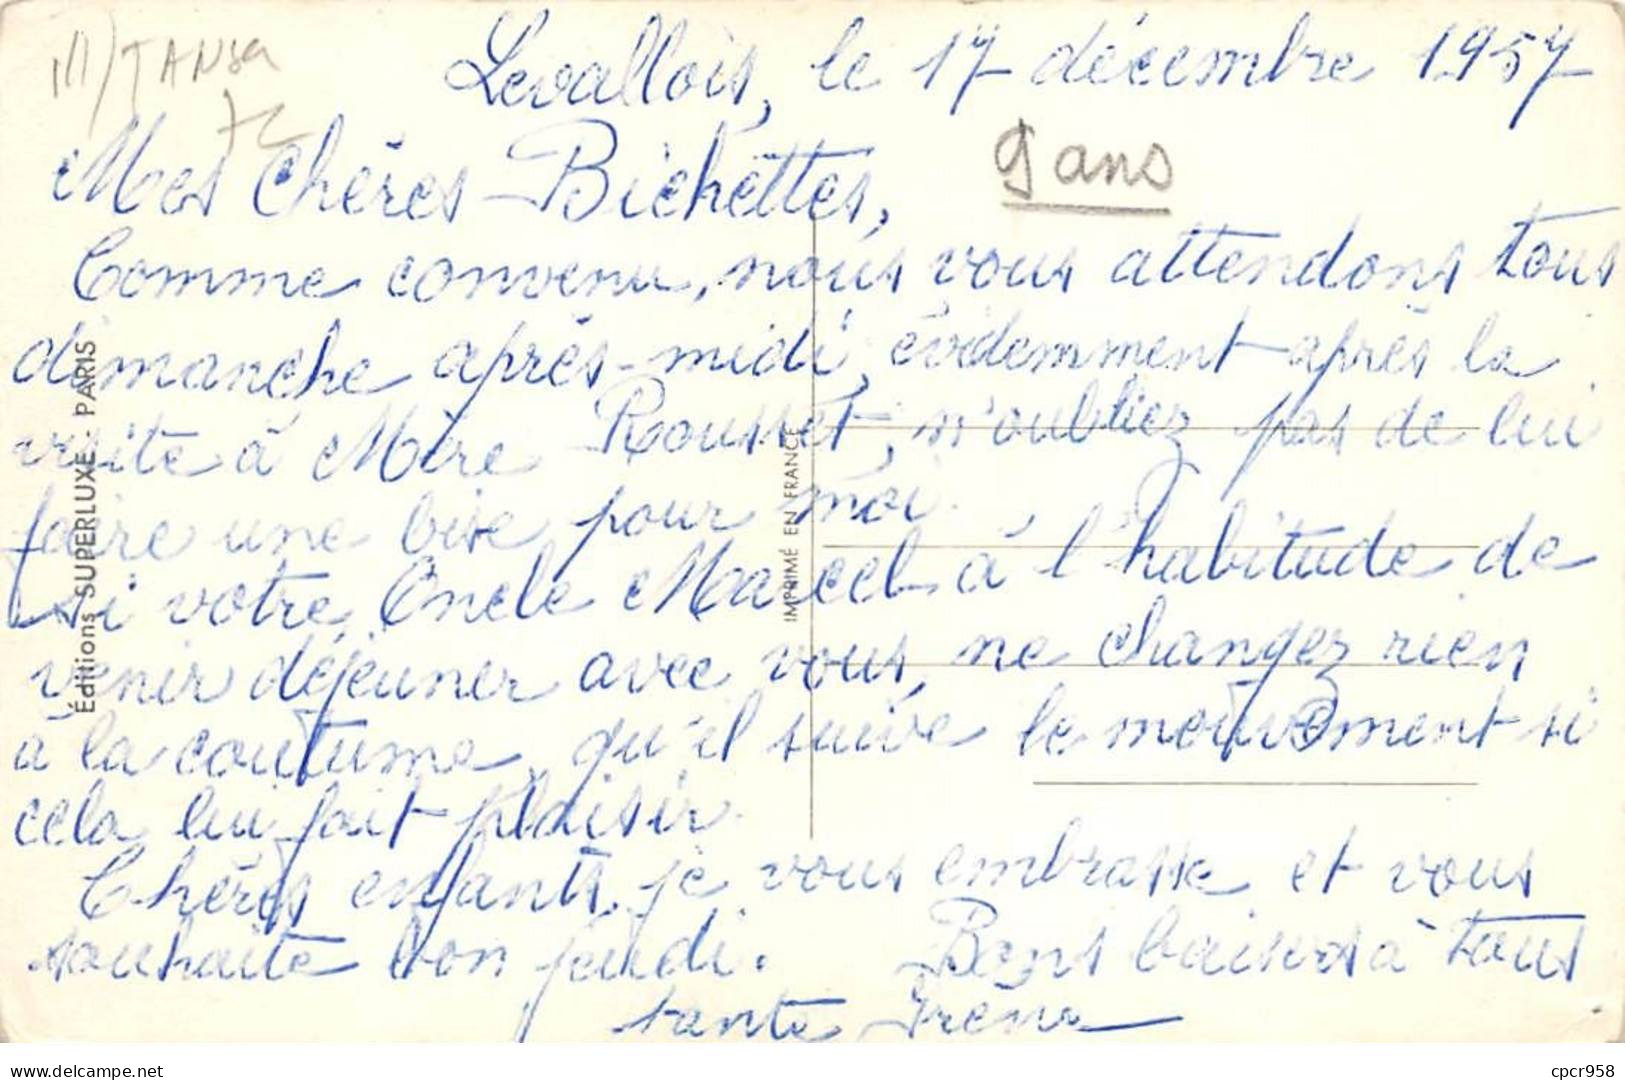 Levallois, le 17 décembre 1957
9 ans
Mes Chères Bichettes,
Comme convenu, nous vous attendons tous
dimanche après-midi, évidemment après la
visite à Mère Rousset, n'oubliez pas de lui
faire une bise pour moi.
Si votre Oncle Marcel à l'habitude de
venir déjeuner avec vous, ne changez rien
à la coutume, qu'il suive le mouvement si
cela lui fait plaisir.
Chères enfants, je vous embrasse et vous
souhaite bon jeudi. Bons baisers à tous
tante Irène
Éditions SUPERLUXE - PARIS
IMPRIMÉ EN FRANCE
https://www.delcampe.net
cpcr958